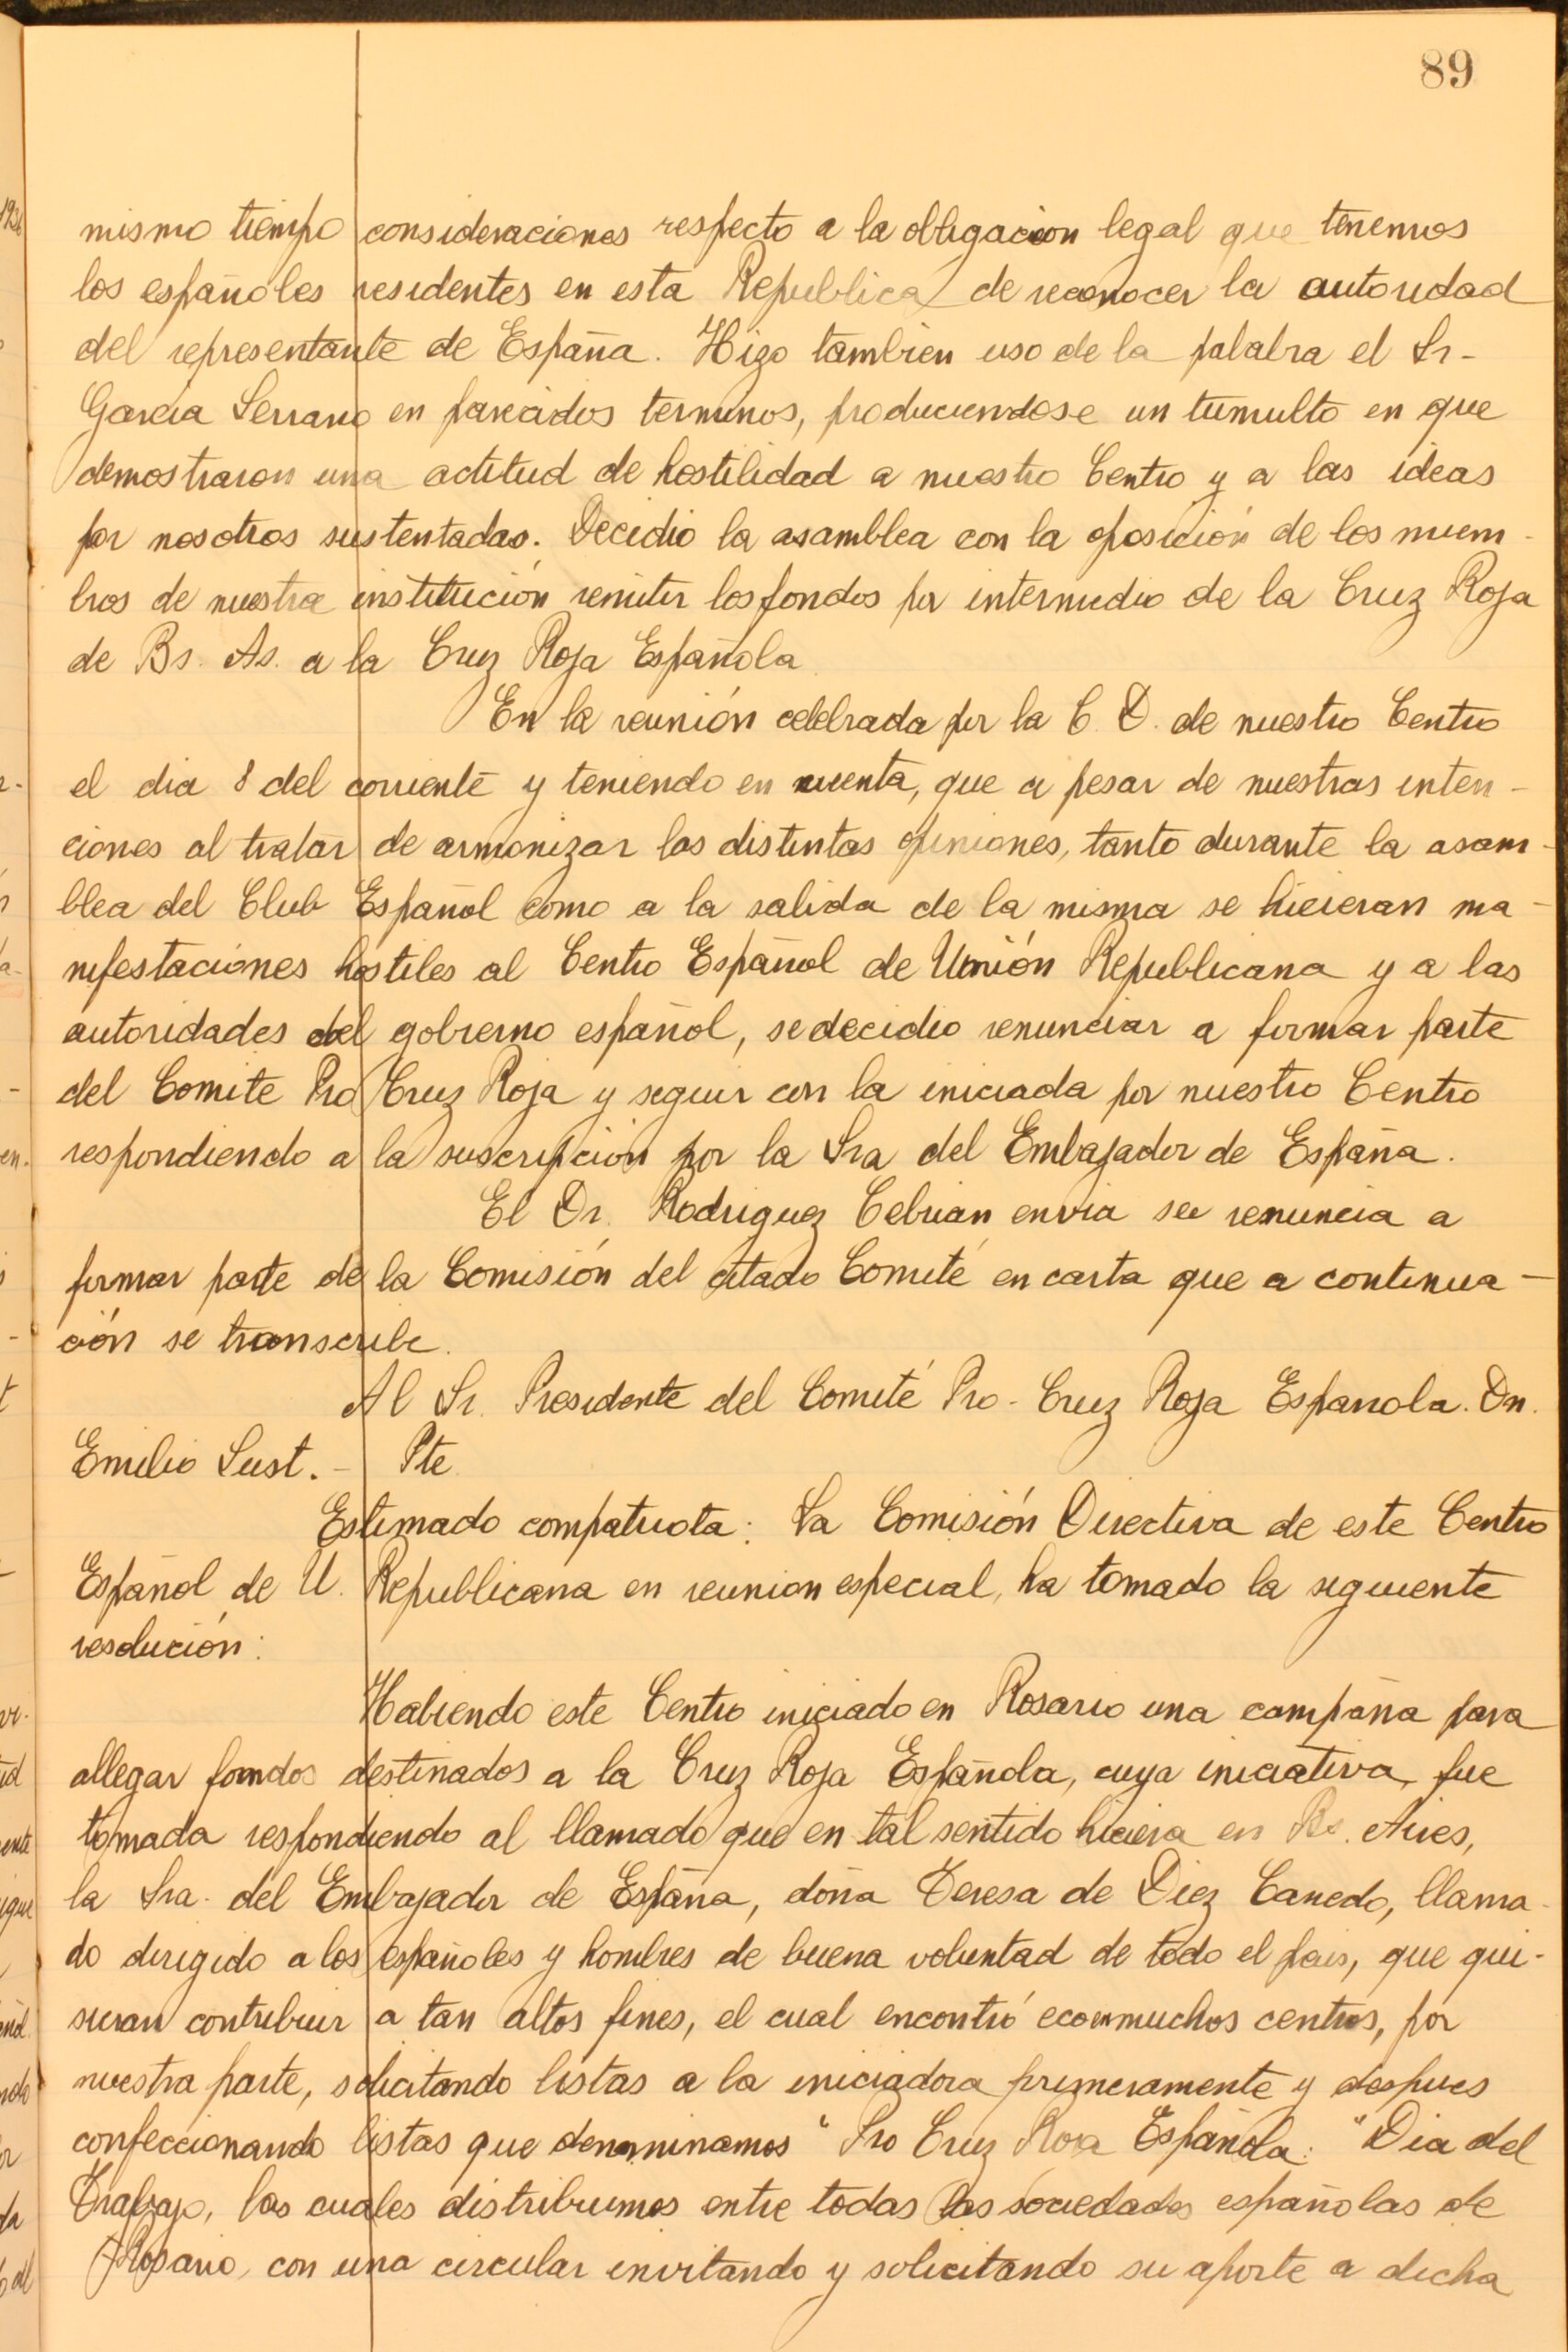 89
mismo tiempo consideraciones respecto a la obligacion legal que tenemos
los españoles residentes en esta Republica de reconocer la autoridad
del representante de España. Hizo tambien uso de la palabra el Sr-
Garcia Serrano en parecidos terminos, produciendose un tumulto en que
demostraron una actitud de hostilidad a nuestro Centro y a las ideas
por nosotros sustentadas. Decidio la asamblea con la oposición de los miem-
bros de nuestra institución remitir los fondos por intermedio de la Cruz Roja
de Bs. As. a la Cruz Roja Española
En la reunión celebrada por la C. D. de nuestro Centro
el dia 8 del corriente y teniendo en cuenta, que a pesar de nuestras inten-
ciones al tratar de armonizar las distintas opiniones, tanto durante la asam-
blea del Club Español como a la salida de la misma se hicieran ma-
nifestaciones hostiles al Centro Español de Unión Republicana y a las
autoridades del gobierno español, se decidio renunciar a formar parte
del Comite Pro Cruz Roja y seguir con la iniciada por nuestro Centro
respondiendo a la suscripción por la Sra del Embajador de España.
El Dr. Rodriguez Cebrian envia su renuncia a
formar parte de la Comisión del citado Comité en carta que a continua-
ción se transcribe.
Al Sr. Presidente del Comité Pro-Cruz Roja Espanola. Dn.
Emilio Sust.- Pte
Estimado compatriota: La Comisión Directiva de este Centro
Español de U. Republicana en reunion especial, ha tomado la siguiente
resolución:
Habiendo este Centro iniciado en Rosario una campaña para
allegar fondos destinados a la Cruz Roja Española, cuya iniciativa, fue
tomada respondiendo al llamado que en tal sentido hiciera en Bs. Aires,
la Sra. del Embajador de España, doña Teresa de Diez Canedo, llama-
do dirigido a los españoles y hombres de buena voluntad de todo el pais, que qui-
sieran contribuir a tan altos fines, el cual encontró eco en muchos centros, por
nuestra parte, solicitando listas a la iniciadora primeramente y despues
confeccionando listas que denominamos "Pro Cruz Roja Española: "Dia del
Trabajo, las cuales distribuimos entre todas las sociedades españolas de
Rosario, con una circular invitando y solicitando su aporte a dicha